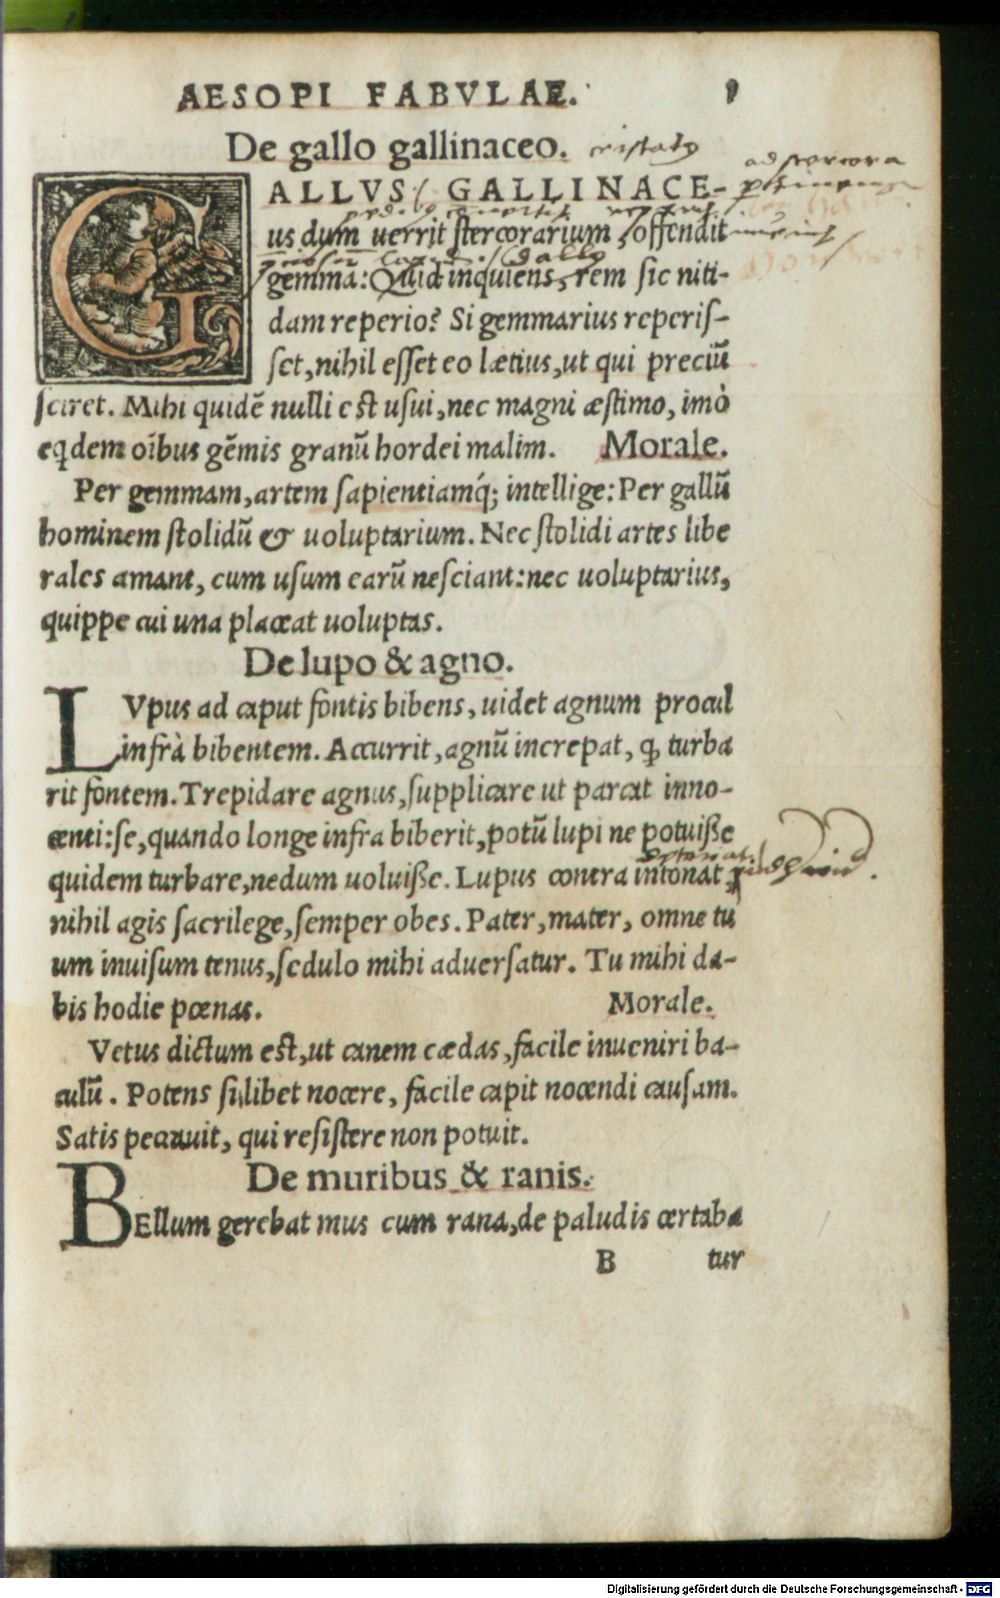 AESOPI FABVLAE. 9
De gallo gallinaceo. cristatus
ad stercora
GALLVS GALLINACE-
us dum uerrit stercorarium, offendit
gemmā: Quid inquiens, rem sic niti-
dam reperio? Si gemmarius reperis-
set, nihil esset eo lætius, ut qui preciū
sciret. Mihi quidē nulli est usui, nec magni æstimo, imò
eqdem oībus gēmis granū hordei malim. Morale.
Per gemmam, artem sapientiamq́; intellige: Per gallū
hominem stolidū & uoluptarium. Nec stolidi artes libe
rales amant, cum usum earū nesciant: nec uoluptarius,
quippe cui una placeat uoluptas.
De lupo & agno.
LVpus ad caput fontis bibens, uidet agnum procul
infrà bibentem. Accurrit, agnū increpat, ꝙ turba
rit fontem. Trepidare agnus, supplicare ut parcat inno-
centi: se, quando longe infra biberit, potū lupi ne potuiße
quidem turbare, nedum uoluiße. Lupus contra intonat,
nihil agis sacrilege, semper obes. Pater, mater, omne tu
um inuisum genus, sedulo mihi aduersatur. Tu mihi da-
bis hodie pœnas. Morale.
Vetus dictum est, ut canem cædas, facile inueniri ba-
culū. Potens si libet nocere, facile capit nocendi causam.
Satis peccauit, qui resistere non potuit.
De muribus & ranis.
BEllum gerebat mus cum rana, de paludis certaba
B tur
Digitalisierung gefördert durch die Deutsche Forschungsgemeinschaft - DFG